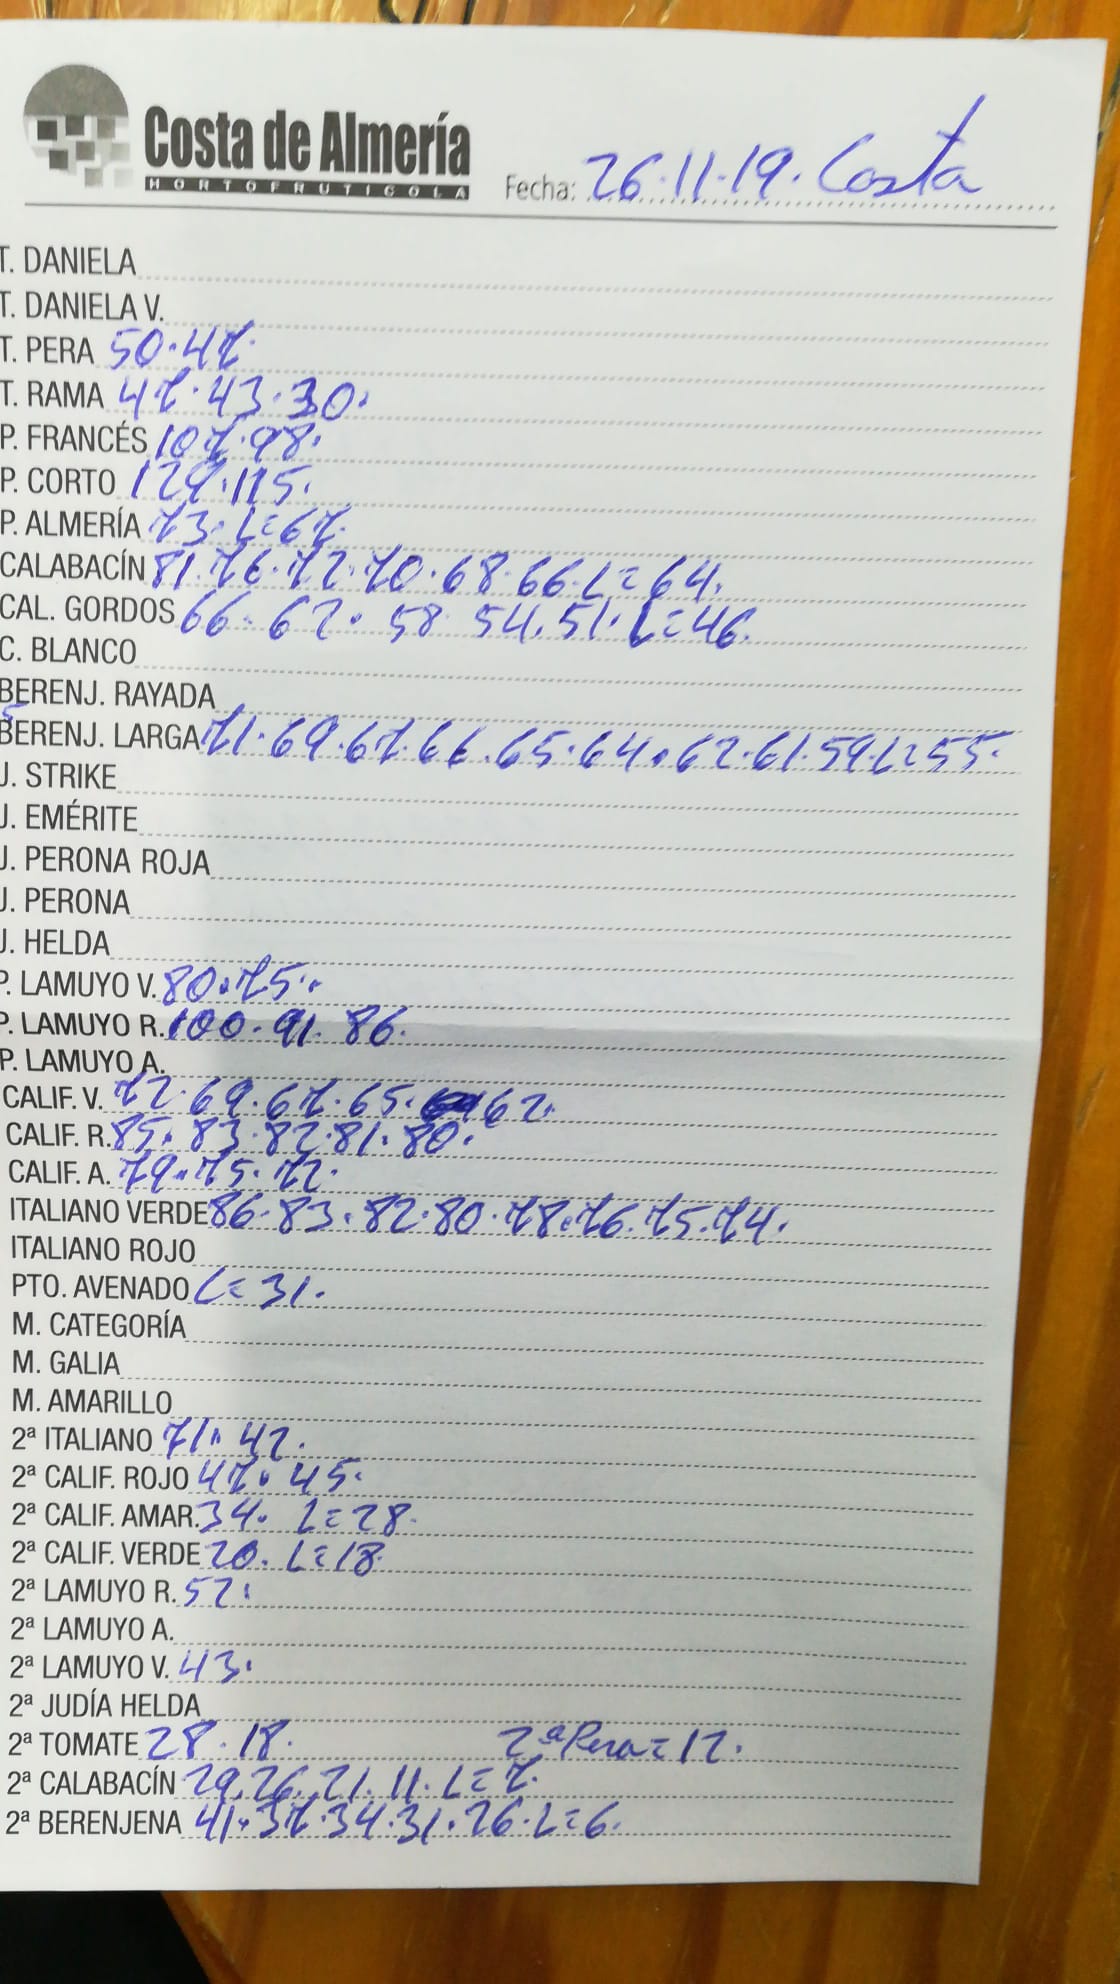 Costa de Almería
HORTOFRUTICOLA
Fecha: 26.11.19. Costa
T. DANIELA
T. DANIELA V.
T. PERA 50.47.
T. RAMA 47.43.30.
P. FRANCÉS 107.98.
P. CORTO 129.115.
P. ALMERÍA 73. L=67.
CALABACÍN 81.76.72.70.68.66.L=64.
CAL. GORDOS 66.62.58 54.51.L=46.
C. BLANCO
BERENJ. RAYADA
BERENJ. LARGA 71.69.67.66.65.64.62.61.59.L=55.
J. STRIKE
J. EMÉRITE
J. PERONA ROJA
J. PERONA
J. HELDA
P. LAMUYO V. 80.75.
P. LAMUYO R. 100.91.86.
P. LAMUYO A.
CALIF. V. 72.69.67.65.62.
CALIF. R. 85.83.82.81.80.
CALIF. A. 79.75.72.
ITALIANO VERDE 86.83.82.80.78.76.75.74.
ITALIANO ROJO
PTO. AVENADO L=31.
M. CATEGORÍA
M. GALIA
M. AMARILLO
2ª ITALIANO 71.42.
2ª CALIF. ROJO 47.45.
2ª CALIF. AMAR. 34. L=28.
2ª CALIF. VERDE 20. L=18.
2ª LAMUYO R. 52.
2ª LAMUYO A.
2ª LAMUYO V. 43.
2ª JUDÍA HELDA
2ª TOMATE 28.18. 2ª Pera=12.
2ª CALABACÍN 29.26.21.11.L=7.
2ª BERENJENA 41.37.34.31.26.L=6.